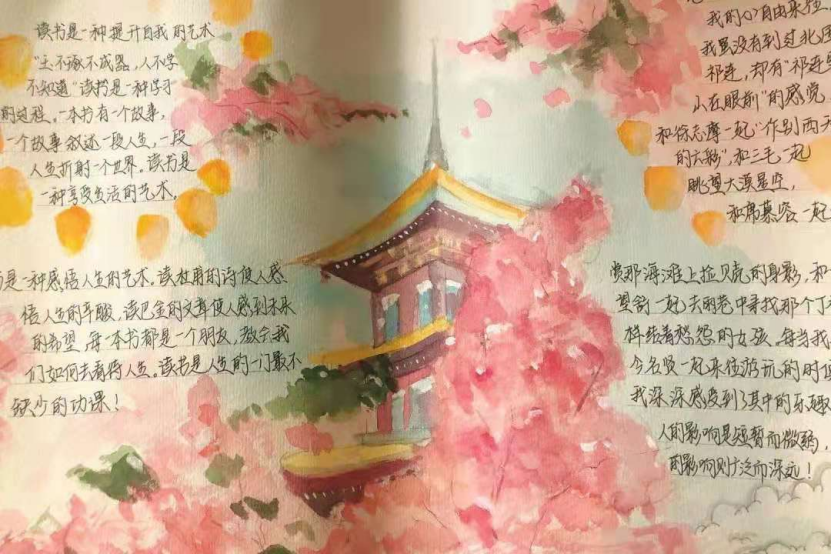 读书是一种提升自我的艺术
"玉不琢不成器,人不学
不知道"读书是一种学习
的过程。一本书有一个故事,
一个故事叙述一段人生,一段
人生折射一个世界。读书是
一种享受生活的艺术。
书是一种感悟人生的艺术。读杜甫的诗使人感
悟人生的辛酸,读巴金的文章使人感到未来
的希望,每一本书都是一个朋友,教会我
们如何去看待人生。读书是人生的一门最不
缺少的功课!
我的心自由来往
我虽没有到过北国
祁连,却有"祁连
山在眼前"的感觉
和徐志摩一起"作别西天
的云彩",和三毛一起
眺望大漠星空,
和席慕容一起
赏那海滩上拉贝壳的身影,和
望舒一起去雨巷中寻找那个丁
样结着愁怨的女孩。每当我
今名贤一起来往游玩的时
我深深感受到了其中的乐趣
人的影响是短暂而微弱,
的影响则广泛而深远!